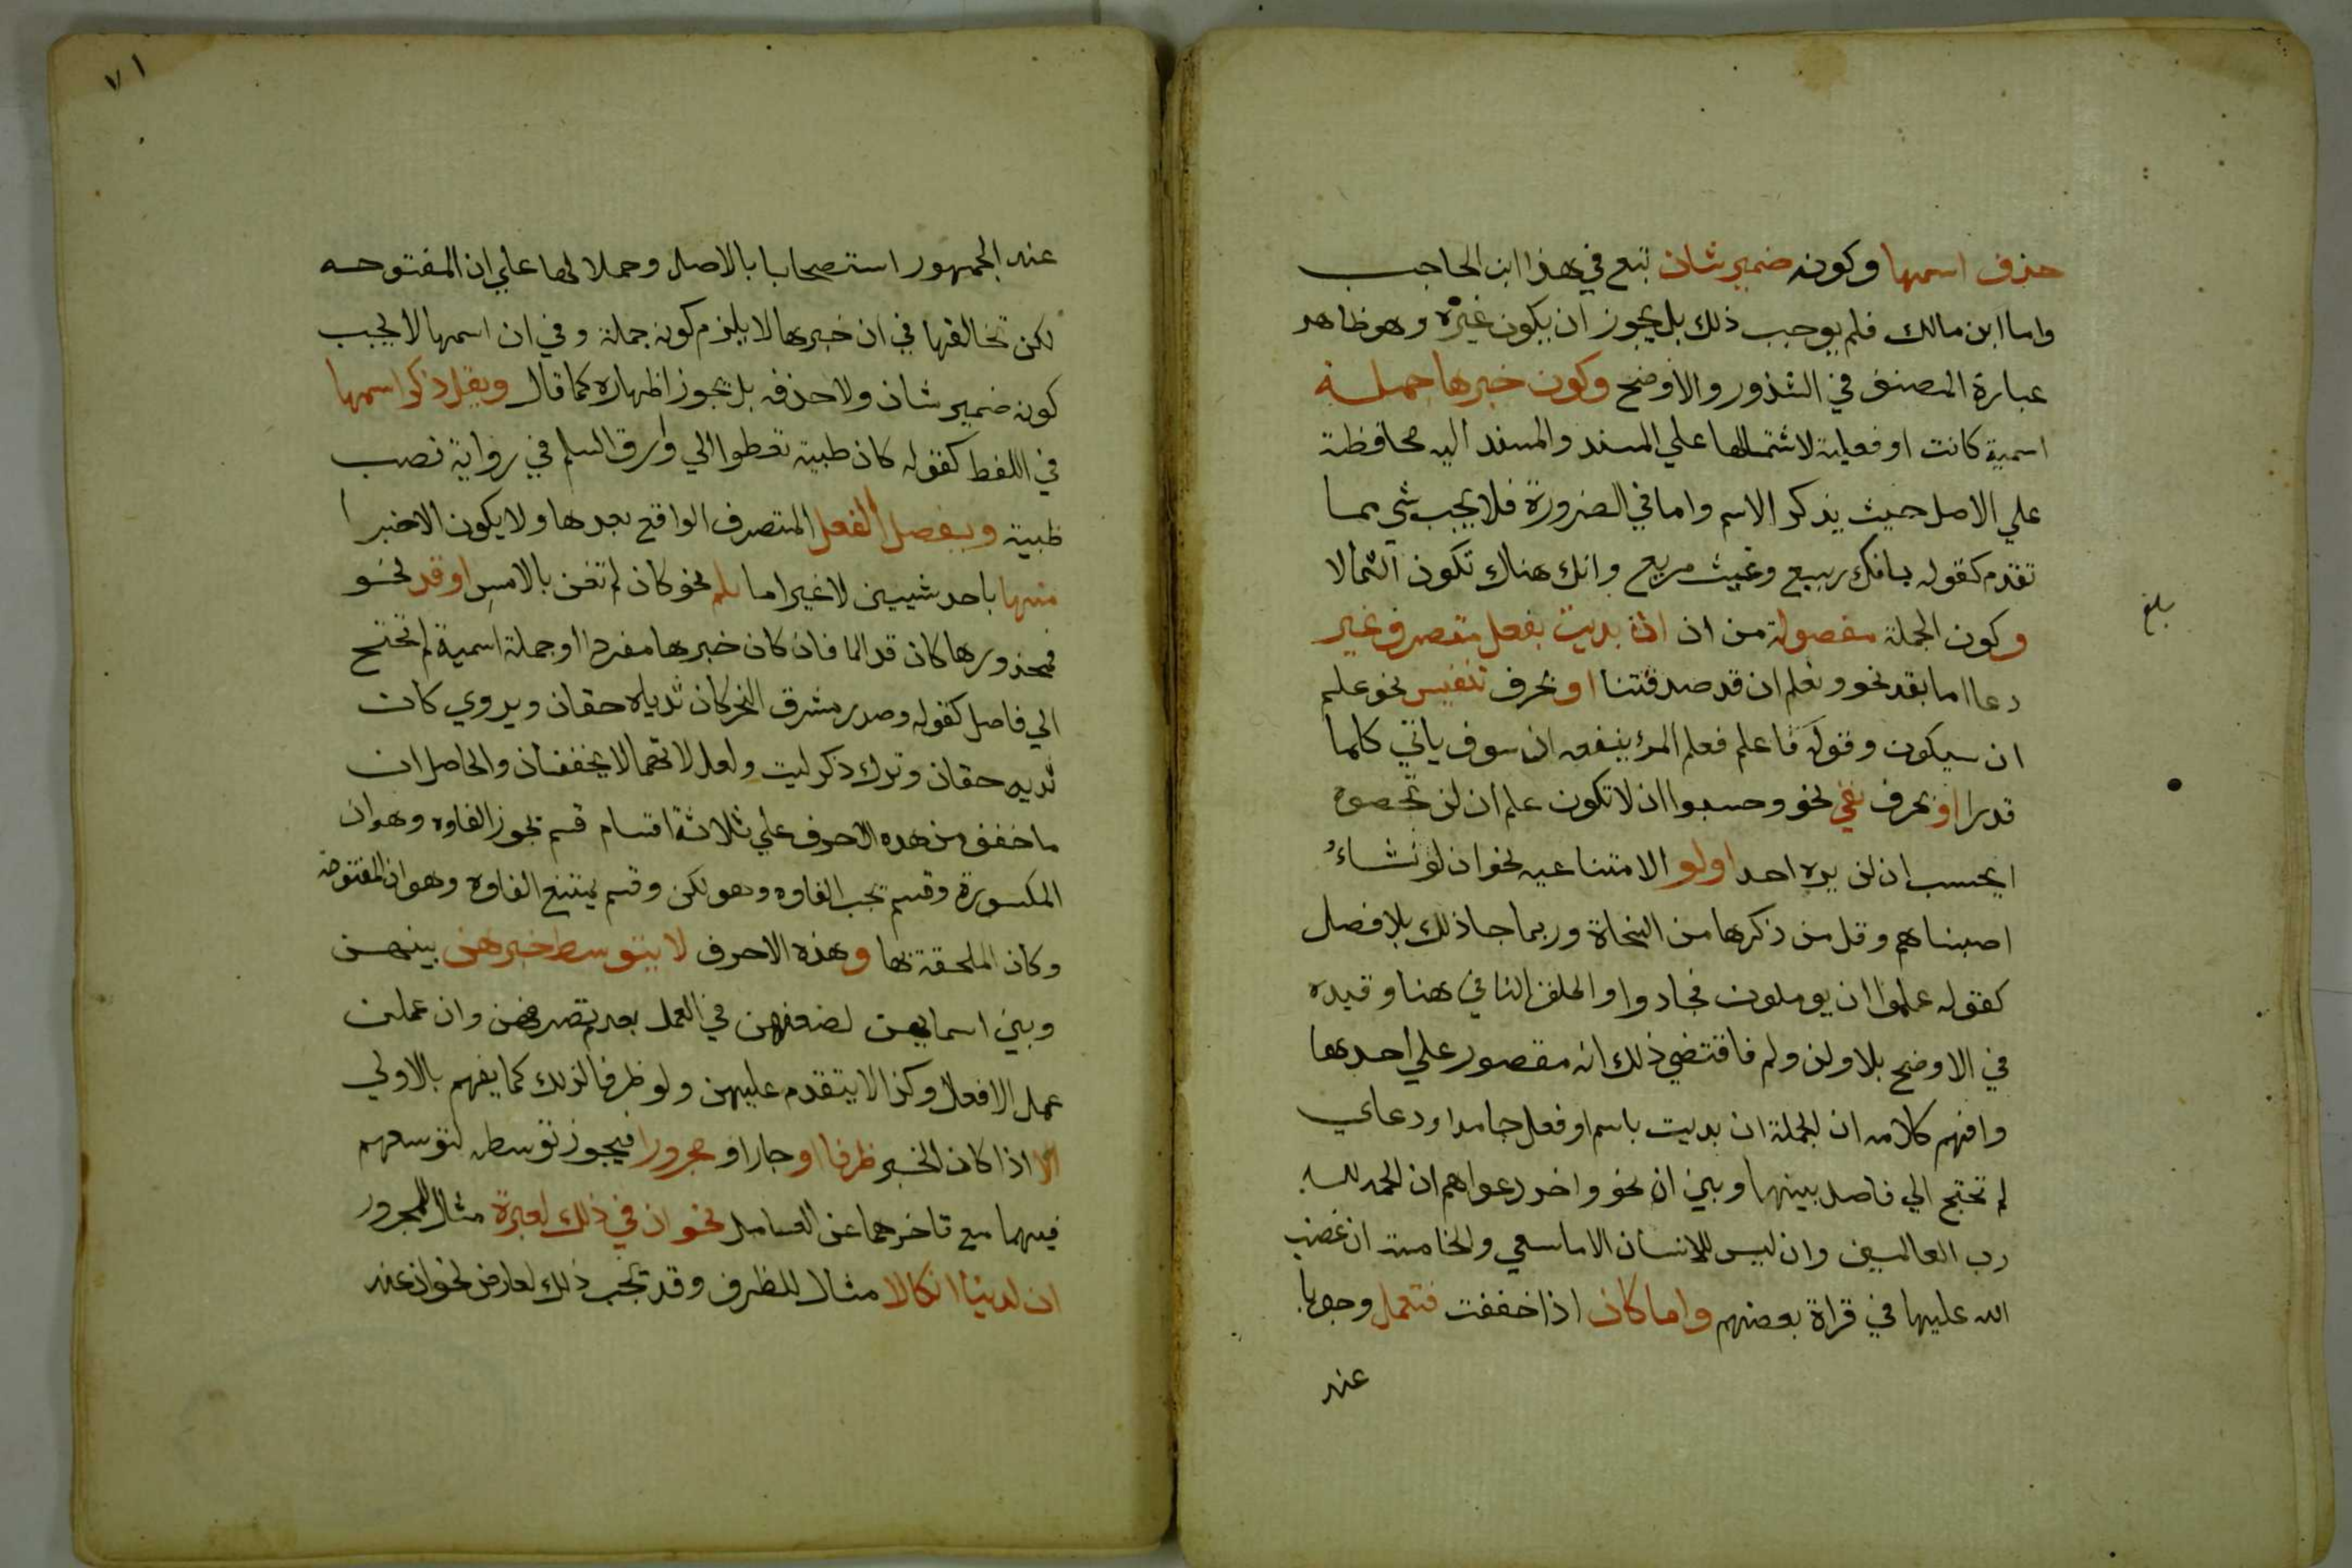 حذف اسمها وكونه ضمير شان تبع في هذا ابن الحاجب
واما ابن مالك فلم يوجب ذلك بل يجوز ان يكون غيره وهو ظاهر
عبارة المصنف في الشذور والاوضح وكون خبرها جملة
اسمية كانت او فعلية لاشتمالها علي المسند والمسند اليه محافظة
علي الاصل حيث يذكر الاسم واما في الضرورة فلا يجب شي مما
تقدم كقوله بانك ربيع وغيث مريع وانك هناك تكون الثمالا
وكون الجملة مفصولة من ان اذا بديت بفعل متصرف غير
دعا اما بقد نحو ونعلم ان قد صدقتنا او بحرف تنفيس نحو علم
ان سيكون وقوله فاعلم فعلم المرء ينفعه ان سوف ياتي كلما
قدرا او بحرف نفي نحو وحسبوا ان لا تكون علم ان لن تحصوه
ايحسب ان لن يره احد او لو الامتناعيه نحو ان لو نشاء
اصبناهم وقل من ذكرها من النحاة وربما جا ذلك بلا فصل
كقوله علموا ان يوملون فجادوا واطلق النافي هنا وقيده
في الاوضح بلا ولن ولم فاقتضي ذلك انه مقصور علي احدها
وافهم كلامه ان الجملة ان بديت باسم او فعل جامد او دعاي
لم تحتج الي فاصل بينها وبين ان نحو واخر دعواهم ان الحمد لله
رب العالمين وان ليس للانسان الا ما سعي والخامسة ان غضب
الله عليها في قراة بعضهم واما كان اذا خففت فتعمل وجوبا
عند
بلغ
٧١
عند الجمهور استصحابا بالاصل وحملا لها علي ان المفتوحه
لكن تخالفها في ان خبرها لا يلزم كونه جملة وفي ان اسمها لا يجب
كونه ضمير شان ولا حذفه بل يجوز اظهاره كما قال ويقل ذكر اسمها
في اللفظ كقوله كان ظبية تعطوا الي وارق السلم في رواية نصب
ظبية ويفصل الفعل المتصرف الواقع بعدها ولا يكون الا خبرا
منها باحد شييين لا غير اما بلم نحو كان لم تغن بالامس او قد نحو
فمحذورها كان قد الما فان كان خبرها مفردا او جملة اسمية لم تحتج
الي فاصل كقوله وصدر مشرق النحر كان ثدياه حقان ويروي كان
ثديه حقان وترك ذكر ليت ولعل لانهما لا يخففان والحاصل ان
ما خفف من هذه الاحرف علي ثلاثة اقسام قسم يجوز الغاوه وهو ان
المكسورة وقسم يجب الغاوه وهو لكن وقسم يمتنع الغاوه وهو ان المفتوحة
وكان الملحقة بها وهذه الاحرف لا يتوسط خبرهن بينهن
وبين اسمايهن لضعفهن في العمل بعدم تصرفهن وان عملن
عمل الافعال وكذا لا يتقدم عليهن ولو ظرفا لذلك كما يفهم بالاولي
الا اذا كان الخبر ظرفا او جارا و مجرورا فيجوز توسطه لتوسعهم
فيهما مع تاخرهما عن العامل نحو ان في ذلك لعبرة مثال للمجرور
ان لدينا انكالا مثال للظرف وقد يجب ذلك لعارض نحو ان عند